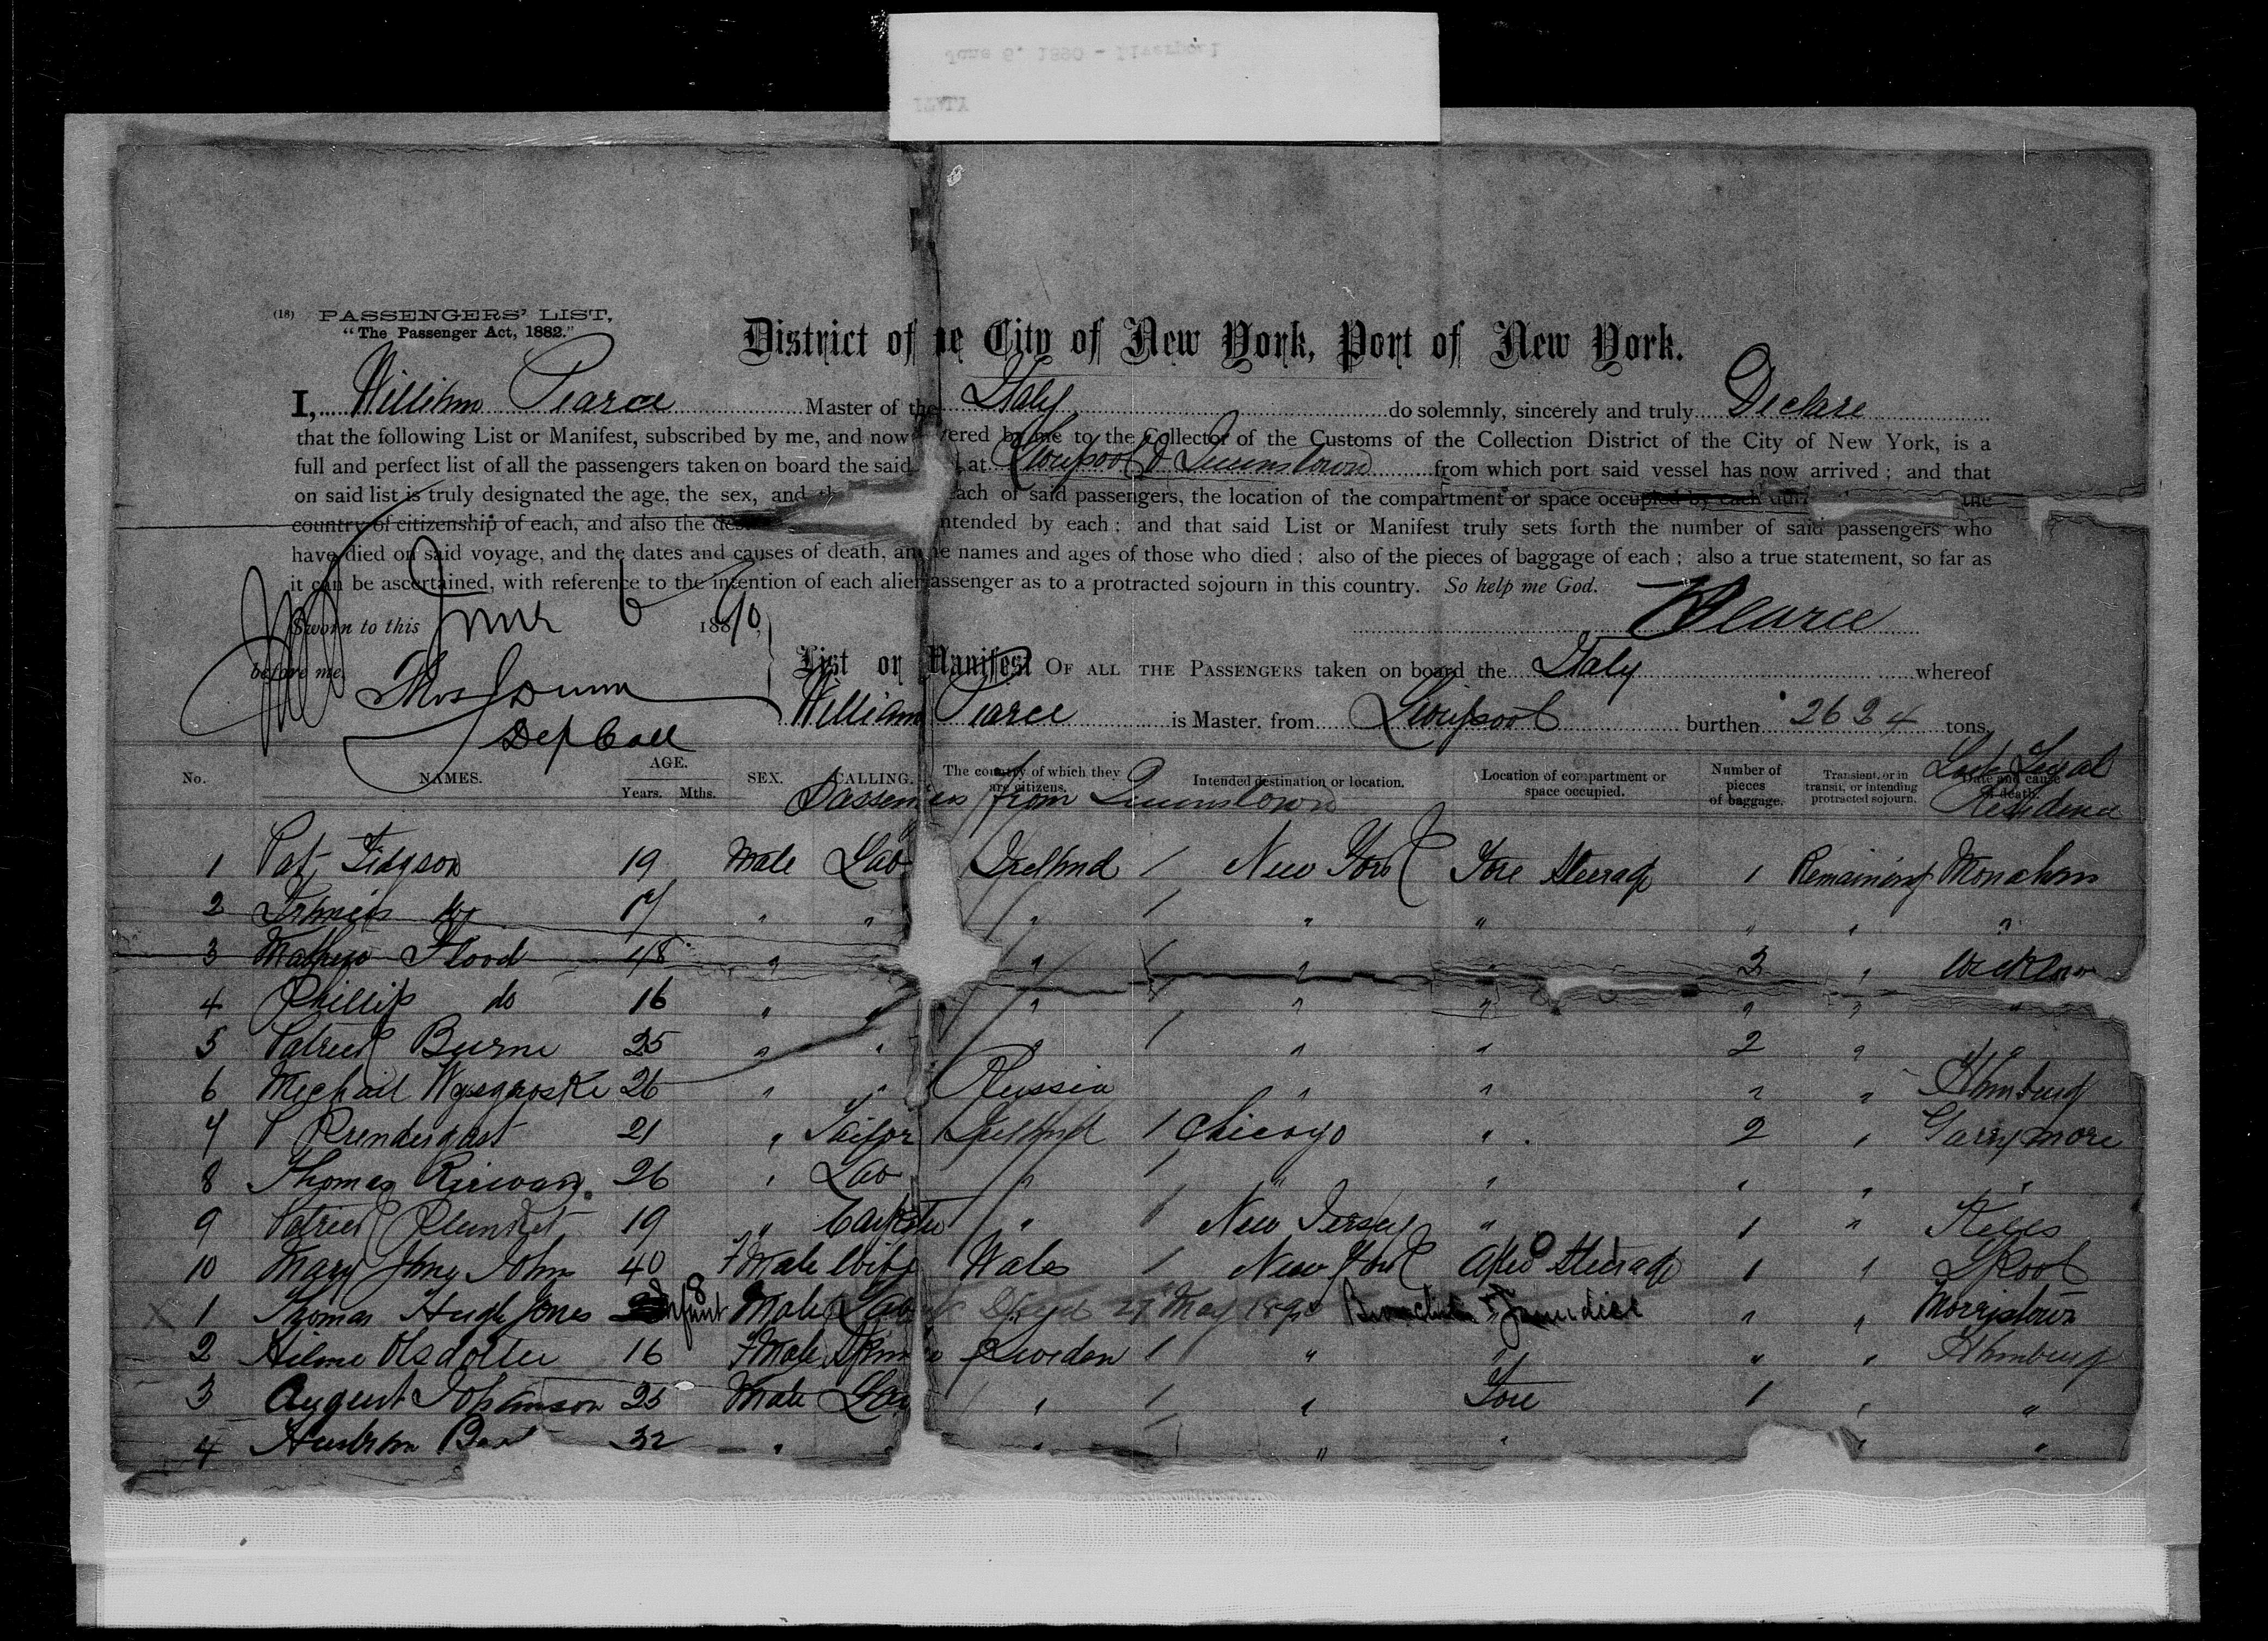 June 6, 1890 - Liverpool
ITALY
(18) PASSENGERS' LIST,
"The Passenger Act, 1882."
District of he City of New York, Port of New York.
I, William Pearce Master of the Italy do solemnly, sincerely and truly Declare
that the following List or Manifest, subscribed by me, and now vered by me to the Collector of the Customs of the Collection District of the City of New York, is a
full and perfect list of all the passengers taken on board the said at Liverpool & Queenstown from which port said vessel has now arrived; and that
on said list is truly designated the age, the sex, and th each of said passengers, the location of the compartment or space occupied by each the
country of citizenship of each, and also the des ntended by each; and that said List or Manifest truly sets forth the number of said passengers who
have died on said voyage, and the dates and causes of death, an he names and ages of those who died; also of the pieces of baggage of each; also a true statement, so far as
it can be ascertained, with reference to the intention of each alien assenger as to a protracted sojourn in this country. So help me God.
Sworn to this June 6 1890, W Pearce
before me, Thos Dunn
Dep Coll
List or Manifest OF ALL THE PASSENGERS taken on board the Italy whereof
William Pearce is Master, from Liverpool burthen 2624 tons
No. NAMES. AGE. Years. Mths. SEX. CALLING. The country of which they are citizens. Intended destination or location. Location of compartment or space occupied. Number of pieces of baggage. Transient, or in transit, or intending protracted sojourn. Date and cause of death. Last Legal Residence
Passengers from Queenstown
1 Pat 19 Male Lab Ireland / New York Fore Steerage 1 Remaining Monahan
2 Francis do 17 " " " / " " " " "
3 Mathew Flood 48 " " / " " 3 " Wicklow
4 Phillip do 16 " " " / " " " " "
5 Patrick Burne 25 " " " / " " 2 " "
6 Michail 26 " " Russia " " " " Hamburg
7 P Prendergast 21 " Tailor Ireland / Chicago " 2 " Garrymore
8 Thomas Kirwan 26 " Lab " / " " " " "
9 Patrick Plunket 19 " " / New Jersey " 1 " Kells
10 Mary Jane John 40 Fmale Wife Wales / New York Steerage 1 " LPool
X 1 Thomas Hugh Jones Infant Male Died 27 May 1890 & Jaundice " " Morristown
2 Hilme Olsdotter 16 Fmale Spin Sweden / " " " " Hamburg
3 August Johanson 25 Male Lab " / " Fore 1 " "
4 32 " " / " " " "